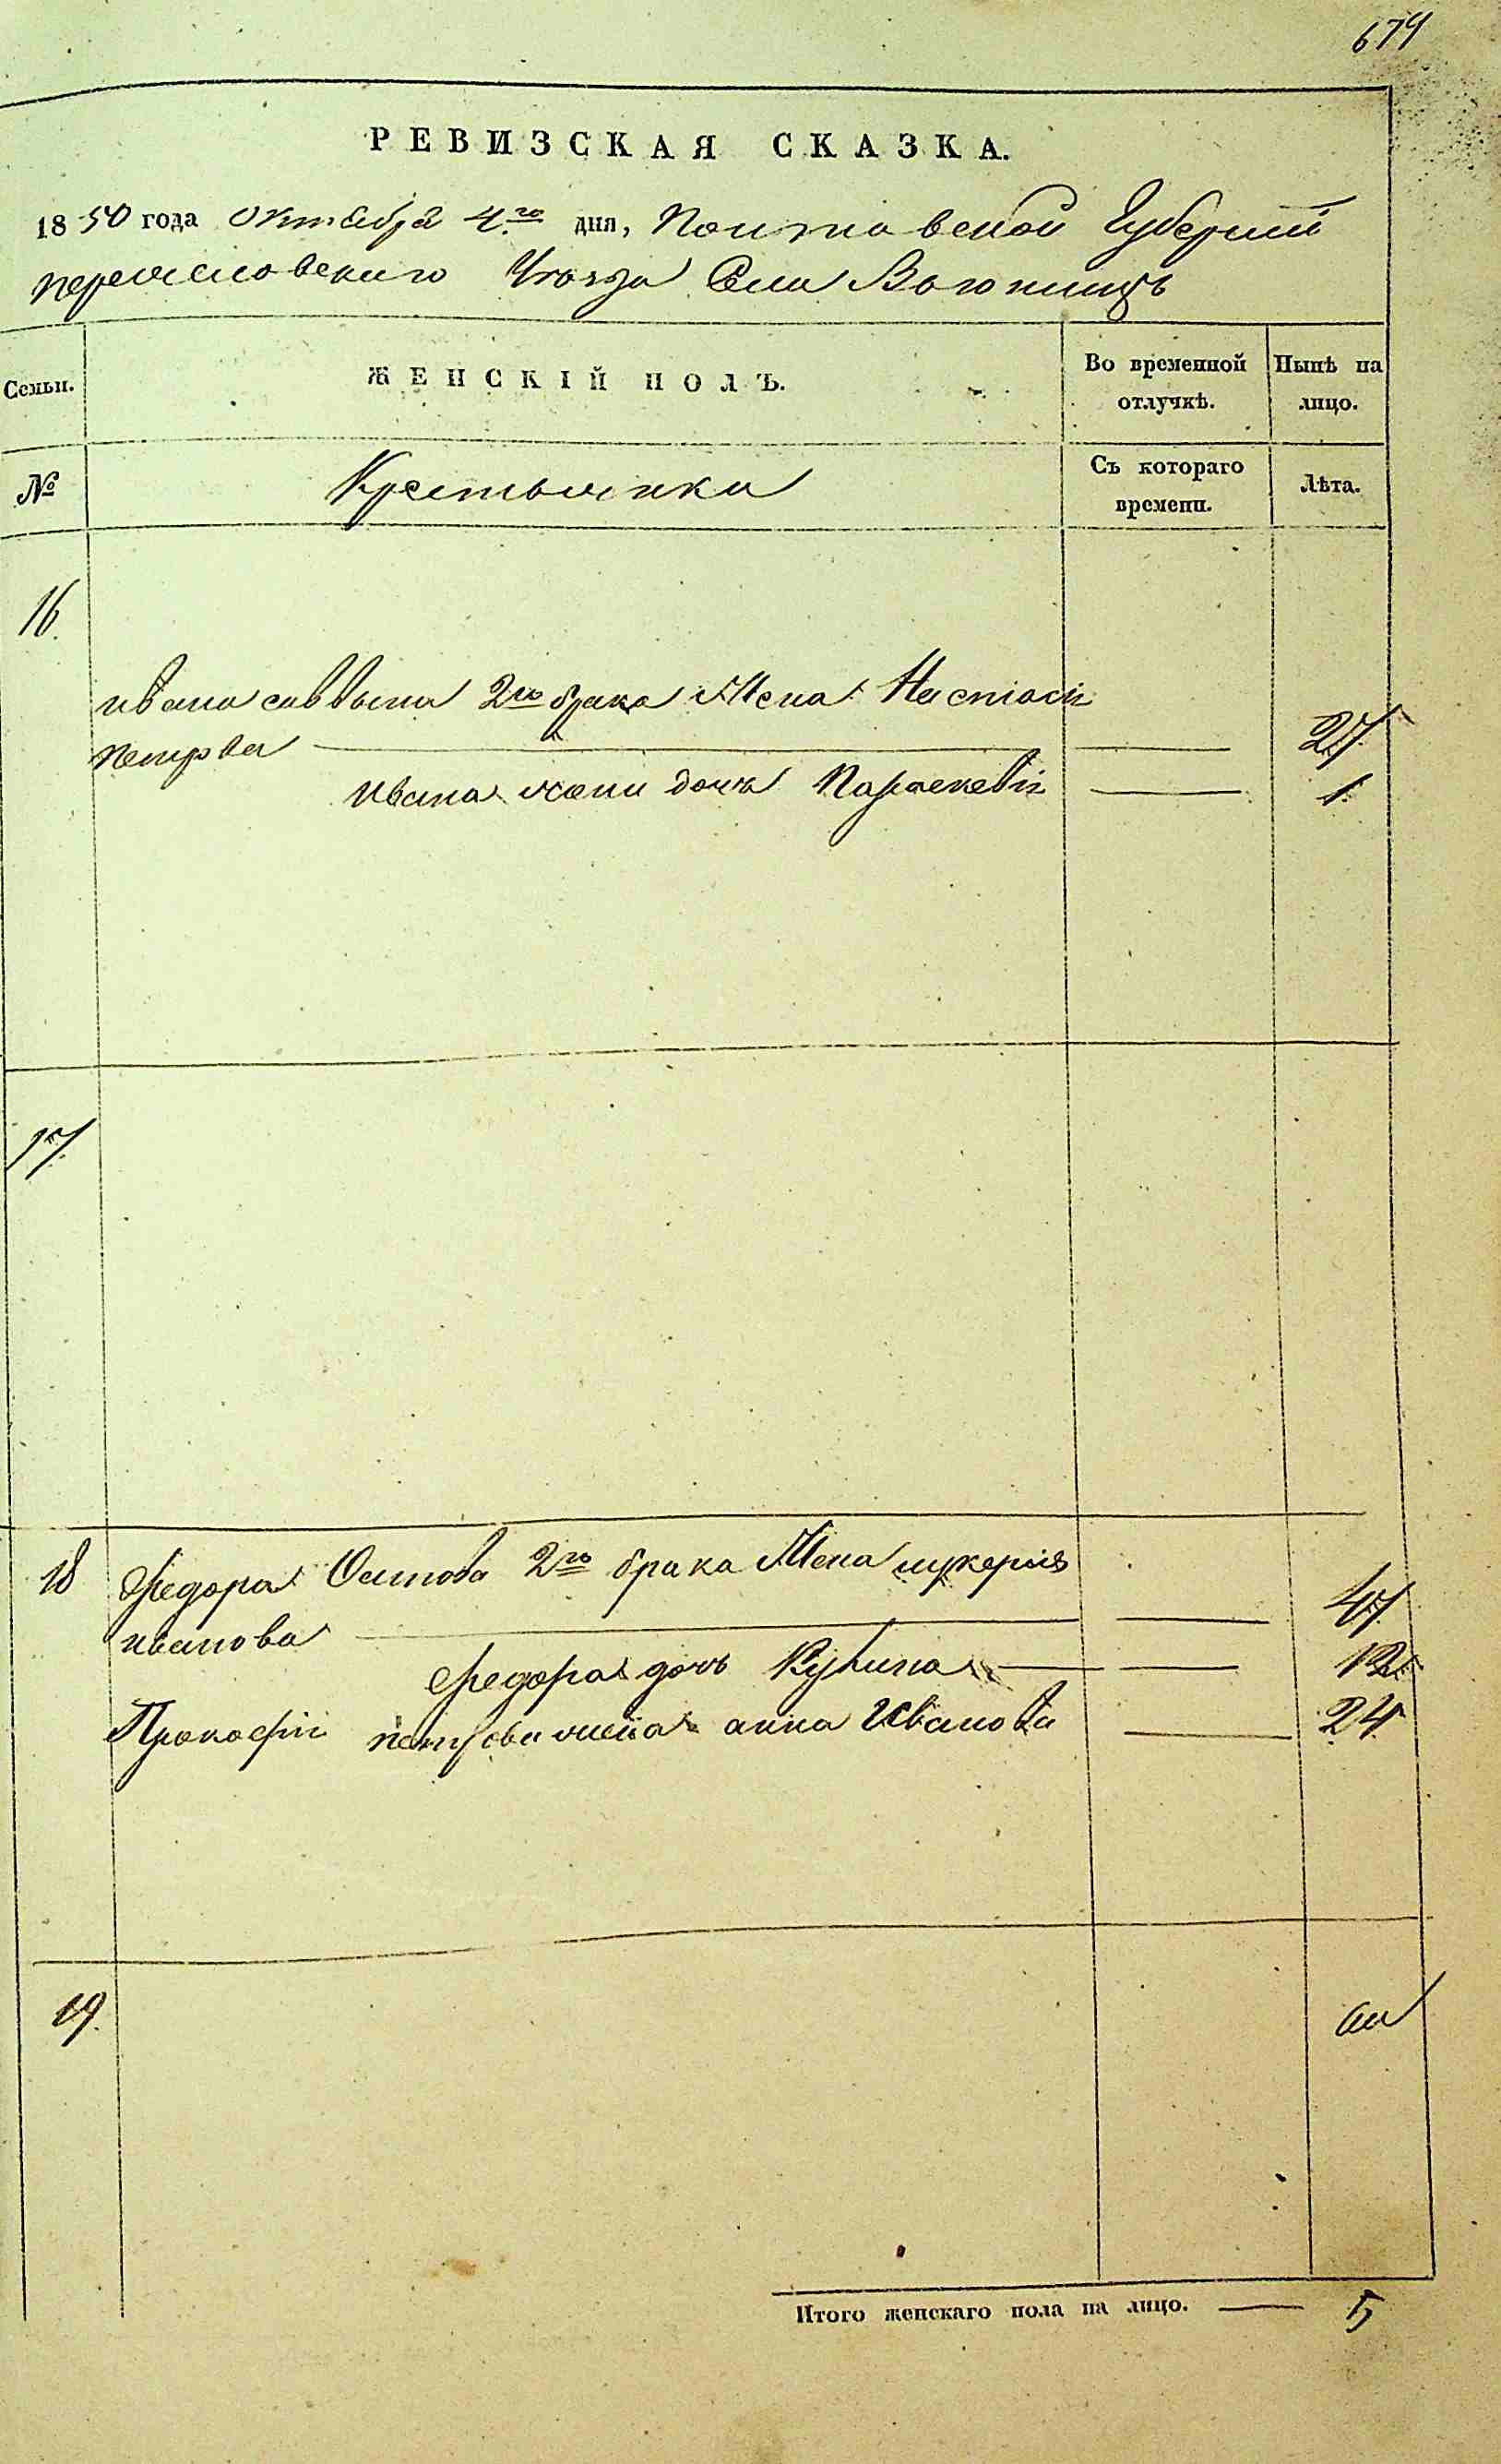 679
РЕВИЗСКАЯ СКАЗКА.
1850 года Октября 4го дня, Полтавской Губернии
переяславскаго Уезда Села Вьюнищъ
Семьи. ЖЕНСКІЙ ПОЛЪ. Во временной отлучкѣ. Нынѣ на лицо.
№ Крестьянки Съ котораго времени. Лѣта.
16.
ивана саввина 2го брака Жена Настасия
петрова 27.
Ивана дочь Параскевия 1.
17.
18 Федора Осипова 2го брака Жена лукерия
иванова 47.
Федора дочь 12
Прокофия петрова жена анна Иванова 24
19.
Итого женскаго пола на лицо. 5